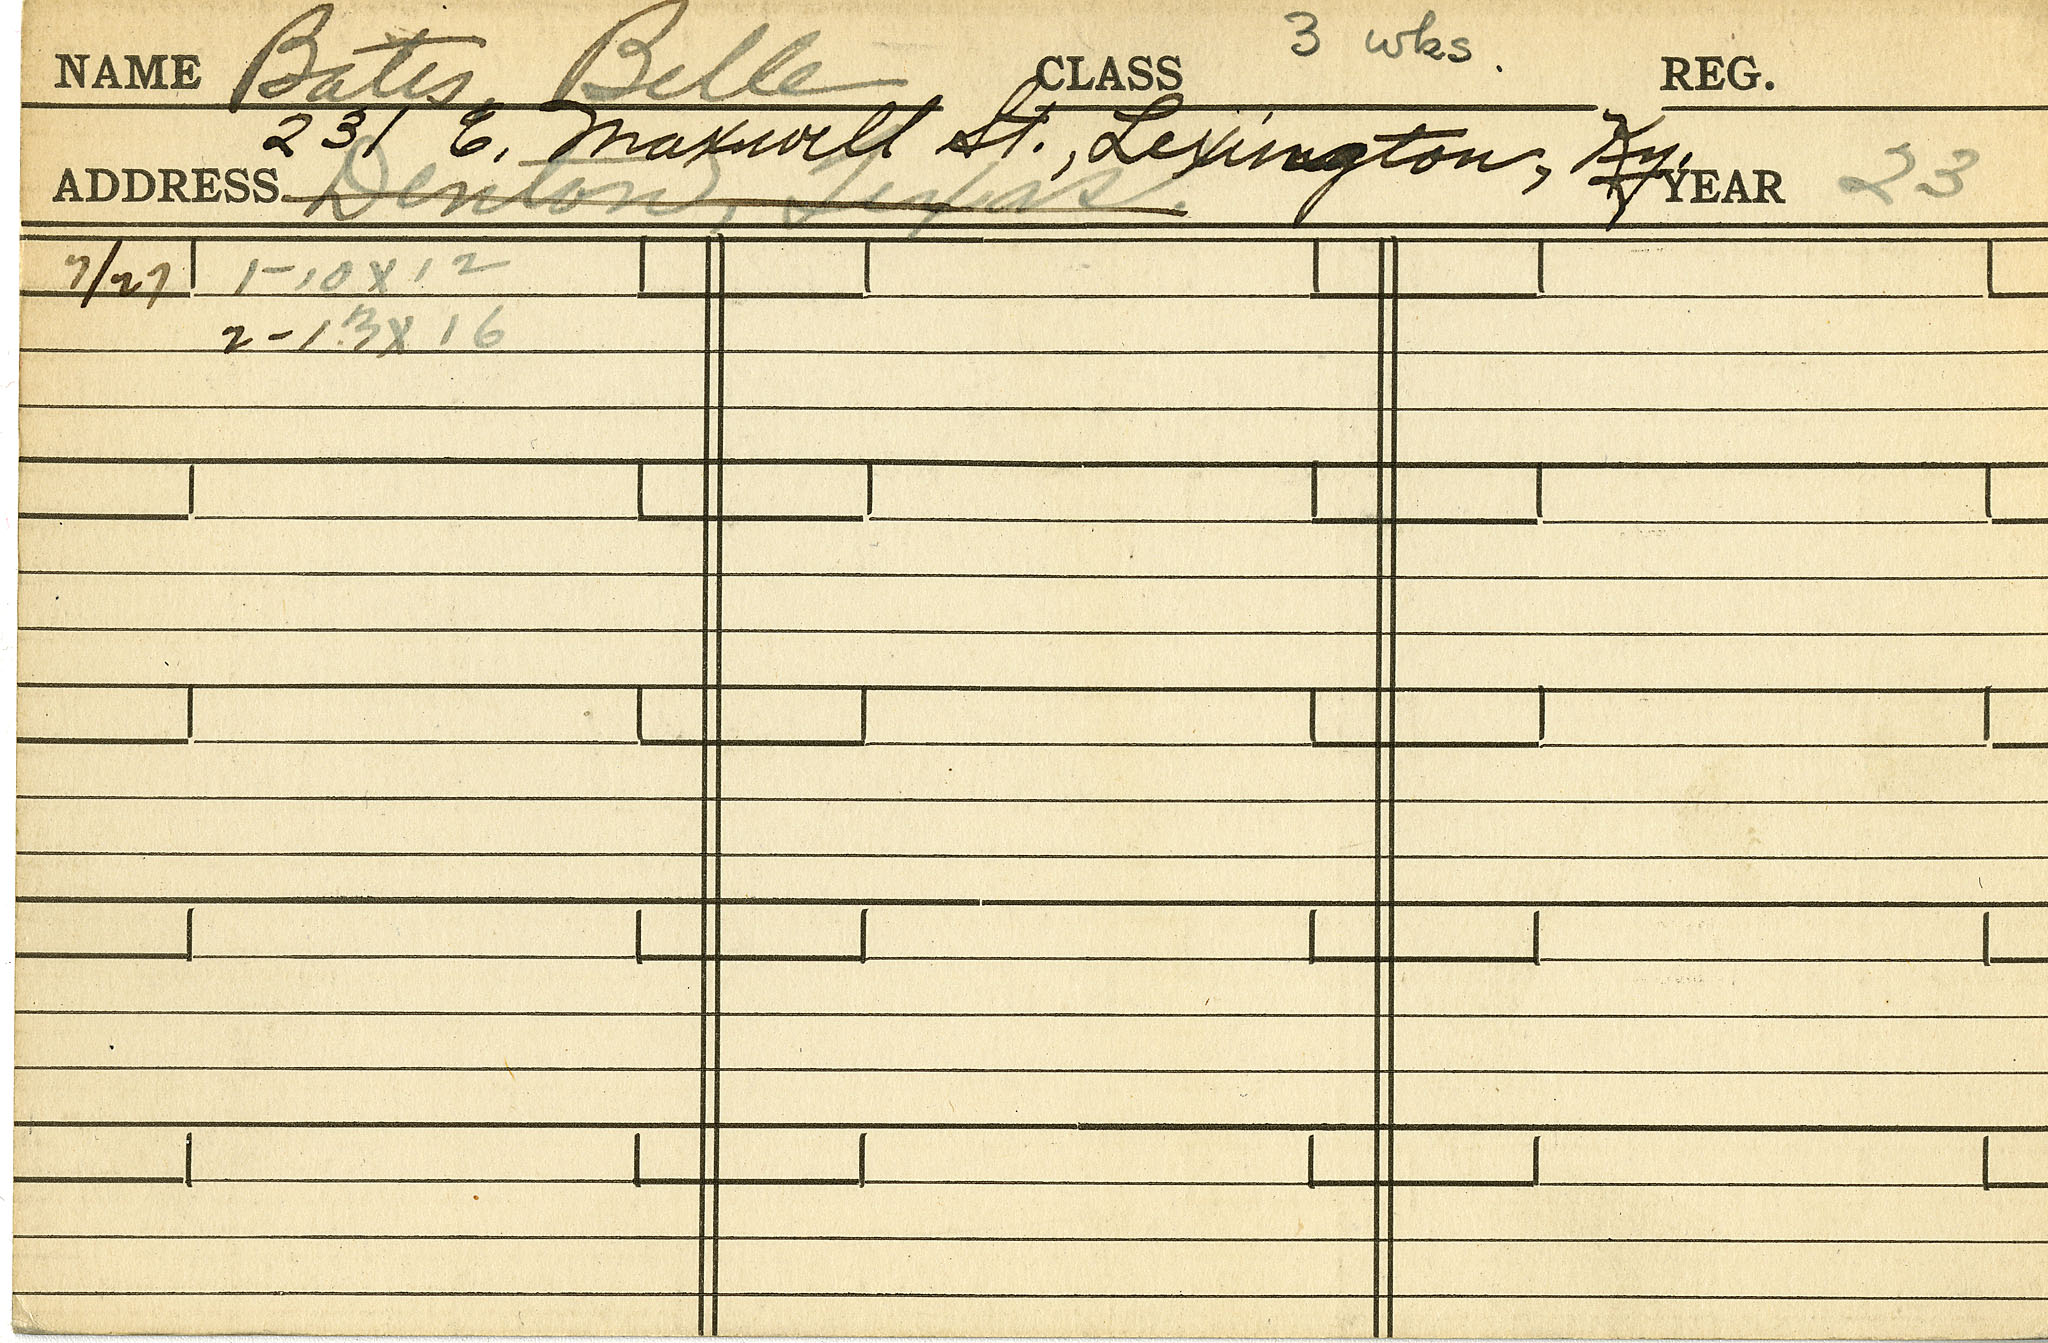 NAME Bates, Belle CLASS 3 wks. REG.
231 E. Maxwell St., Lexington, Ky.
ADDRESS Denton, Texas. YEAR 23
7/27 1-10x12
2-13x16